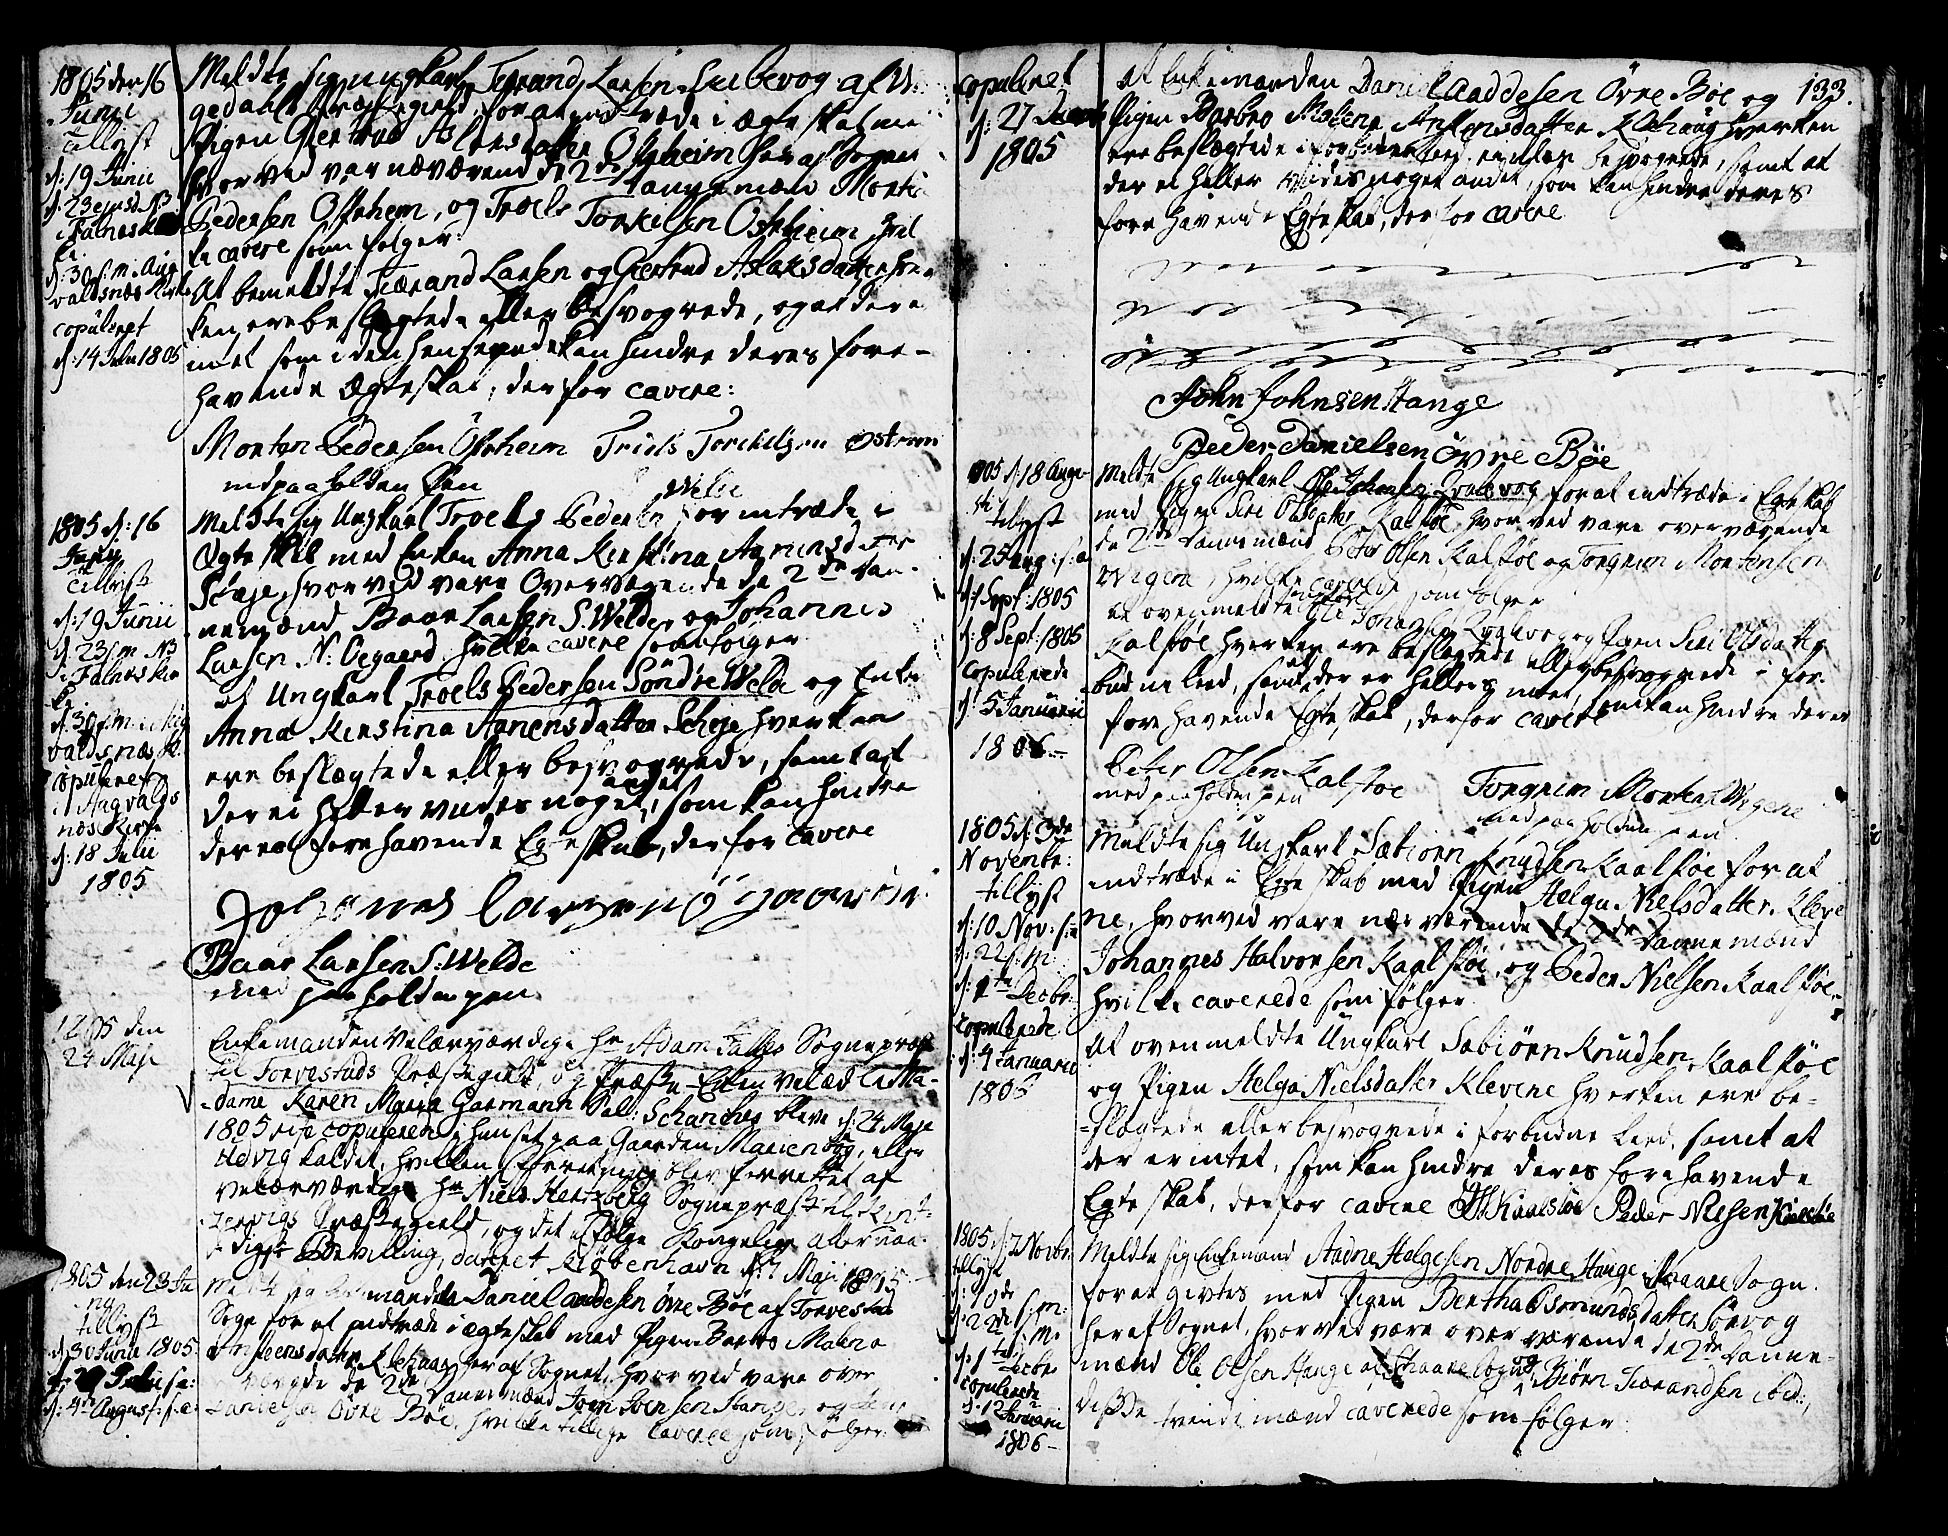 1805 den 16
Junii
tillyst
d: 19 Junii
d: 23 ejusd. N3
i Falnes Kir
ke.
d: 30 s: m: Aug
valdsnæs Kirke
copuleret
d: 14 Julii 1805
Meldte sig ungkarl Tieran Larsen Huibevog af
gedahls Præstegield, for at indtræde i ægteskab me
Pigen Giertrud Aslaksdatter Ostrheim her af Sognet
hvorved var nærværende de 2de Dannemænd Morten
Pedersen Ostrhem, og Troels Torkelsen Ostrheim, hvil
ke cavere som følger:
At bemeldte Tierand Larsen og Giertrud Aslaksdatter hver
ken ere beslægtede eller besvogrede, og at der e
intet som i den henseende kan hindre deres fore-
havende Ægteskab, derfor cavere:
Morten Pedersen Ostrheim Triels Torckelsen Ostrem
med paaholden Pen
1805 d: 16
Juny
tillyst
d: 19 Junii
d 23 s: m N3
i Falnes Kir
ke.
d: 30 s: m:
valdsnæs K:
copuleret
i Augvalds
næs Kirke
d: 18 Julii
1805
Meldte sig Ungkarl Troels Pedersen Welde for at indtræde i
Ægteskab med Enken Anna Kirstina Aanensdatter
Schoje, hvorved vare Overværende de 2de Dan-
nemænd Baar Larsen S. Welde og Johannes
Larsen N: Oegaard, hvilke cavere som følger
At Ungkarl Troels Pedersen Söndre Welde og Enke
Anna Kirstina Aanensdatter Schoje hverken
ere beslægtede eller besvogrede, samt at
der ei heller vides noget andet, som kan hindre
deres forehavende Egteskab, derfor cavere
Johannes larsen
Baar Larsen S: Welde
med paaholden pen
1805 den
24 Maji
Enkemanden Velærværdige Hr Adam Falkes Sognepræst
til Torvestads Præstegield, og Præste-Enken Velædle Ma-
dame Karen Maria Garmann Sal: Schanches bleve d: 24 Maji
1805 copulerede i huuset paa Gaarden Marienborg, eller
Hedvig kaldet, hvilken forretning blev forrettet af
velærværdige Hr Niels Hertzberg Sognepræst til Kint-
zervigs Præstegield, og det ifølge Kongelig allernaa-
digst Bevilling, dateret Kiøbenhavn d: 7 Maji 1805
1805 den 23 Ju
nii
tillyst
d: 30 Junii 1805
d: 4de August: s: a:
Meldte sig Enkemanden Daniel Aaddesen Övre Bøe af Torvestad
Sogn for at indtræde i ægteskab med Pigen Barbro Malena
Ansteensdatter Klehaug her af Sognet, hvorved vare over
værende de 2de Dannemænd Joen Joensen Hange og
Danielsen Övre Bøe, hvilke tillige cavere som følger:
copuleret
d: 27
1805
At Enkemanden Daniel Aaddesen Övre Bøe og 133.
Pigen Barbro Malena Antensdatter Klehaug hverken
ere beslægtede i forbudne leed, ei eller besvogrede, samt at
der ei heller vides noget andet, som kan hindre deres
fore havende Egteskab, derfor cavere
John Johnsen Hange
Peder Danielsen övre Bøe
1805 d: 18 Augu-
sti
tillyst
d: 25 Aug: s: a
d: 1 Sept: 1805
d: 8 Sept: 1805
copulerede
d: 5 Januarii
1806 —
Meldte sig Ungkarl Ole Johansen Qvalevog for at indtræde i Egteskab
med Pigen Siri Olsdatter Kalstøe, hvorved vare overværende
de 2de Dannemænd Peter Olsen Kalstøe og Torgrim Mortensen
Wigene, hvilke caverede som følger
At ovenmeldte Ole Johansen Qvalevog og Pigen Siri Olsdatter
Kalstøe hverken ere beslægtede eller besvogrede i for-
budne leed, samt at der er hellers intet, som kan hindre deres
forehavende Egteskab, derfor cavere
Peter Olsen Kalstøe Torgrim Mortens Wigene
med paaholden pen med paaholden pen
1805 d: 3de
Novembr:
tillyst
d: 10 Nov: s: a
d: 22 s: m
d: 1te Decbr:
copulerede
d: 4 Januarii
1805
Meldte sig Ungkarl Sæbiörn Knudsen Kaalstøe for at
indtræde i Egteskab med Pigen Helga Nielsdatter Kleve
ne, hvorved vare nærværende de 2de Dannemænd
Johannes Halvorsen Kaalstøe, og Peder Nielsen Kaalstøe
hvilke caverede som følger
At ovenmeldte Ungkarl Sæbiörn Knudsen Kaalstøe
og Pigen Helga Nielsdatter Klevene hverken ere be-
slægtede eller besvogrede i forbudne leed, samt at
der er intet, som kan hindre deres forehavende
Egteskab, derfor cavere JH Kaalstøe Peder Nilsen Kalstøe
1805 d: 7 Novbr:
tillyst
d: 10de
d: 22de s: m:
d: 1te Decbr
copulerede
d: 12 Januarii
1806 —
Meldte sig Enkemand Aadne Helgesen Nordre Hange, i Skaare Sogn.
for at givtes med Pigen Bertha Osmundsdatter Sørvog
her af Sognet, hvorved vare overværende de 2de Danne-
mænd Ole Olsen Hange af Skaare Sogn, og Biørn Tierandsen ibid:,
disse tvende mænd caverede som følger: